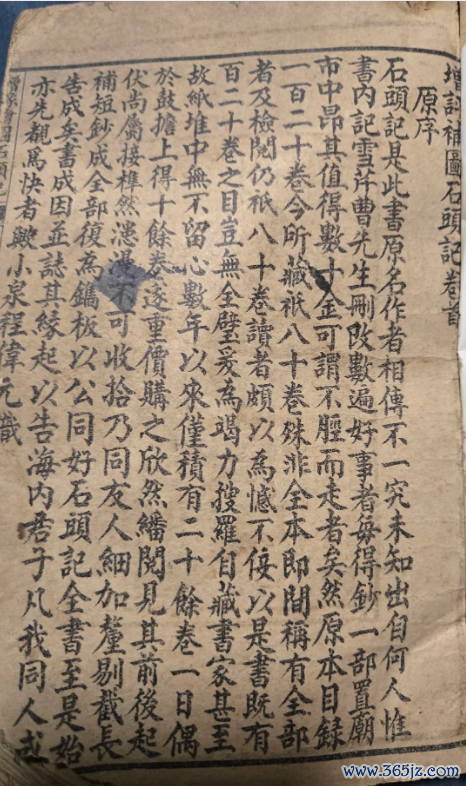 增評補圖石頭記卷首
原序
石頭記是此書原名作者相傳不一究未知出自何人惟
書內記雪芹曹先生刪改數遍好事者每得鈔一部置廟
市中昂其值得數十金可謂不脛而走者矣然原本目錄
一百二十卷今所藏祇八十卷殊非全本即間稱有全部
者及檢閱仍祇八十卷讀者頗以為憾不佞以是書既有
百二十卷之目豈無全璧爰為竭力搜羅自藏書家甚至
故紙堆中無不留心數年以來僅積有二十餘卷一日偶
於鼓擔上得十餘卷遂重價購之欣然繙閱見其前後起
伏尚屬接榫然漶漫不可收拾乃同友人細加釐剔截長
補短鈔成全部復為鐫板以公同好石頭記全書至是始
告成矣書成因並誌其緣起以告海內君子凡我同人或
亦先覩為快者歟小泉程偉元識
www.365jz.com